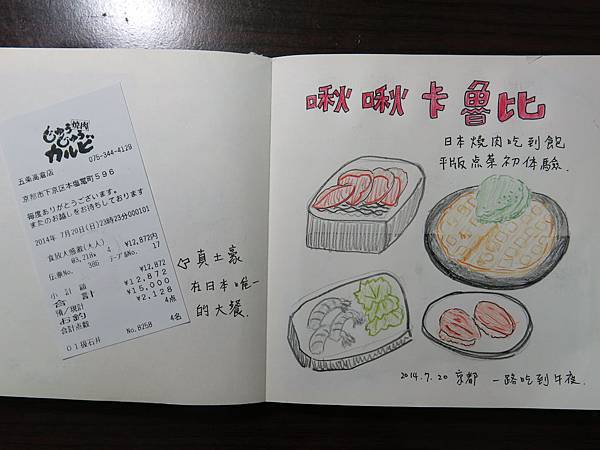 じゅうじゅう
焼肉
カルビ
075-344-4129
五条高倉店
京都市下京区本塩竈町596
毎度ありがとうございます。
またのお越しをお待ちしております
2014年 7月20日(日)23時23分000101
食放入感激(大人)
@3,218x 4 ¥12,872内
伝票No. 305 テーブルNo. 17
小計額 ¥12,872
合計 ¥12,872
預/現計 ¥15,000
お釣 ¥2,128
合計点数 4点
No.8258 4名
01級石井
真土豪
在日本唯一
的大餐.
啾啾卡魯比
日本燒肉吃到飽
平版点菜初体驗.
2014.7.20 京都 一路吃到午夜.